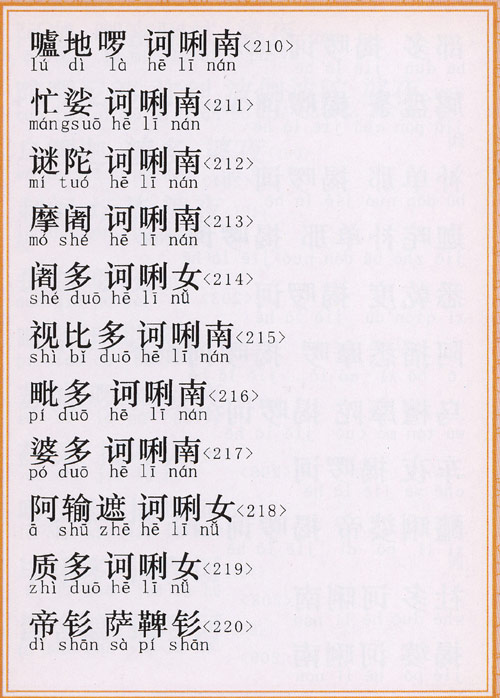 嚧地啰 诃唎南<210>
lú dì là hē lī nán
忙娑 诃唎南<211>
mángsuō hē lī nán
谜陀 诃唎南<212>
mí tuó hē lī nán
摩阇 诃唎南<213>
mó shé hē lī nán
阇多 诃唎女<214>
shé duō hē lī nǚ
视比多 诃唎南<215>
shì bǐ duō hē lī nán
毗多 诃唎南<216>
pí duō hē lī nán
婆多 诃唎南<217>
pó duō hē lī nán
阿输遮 诃唎女<218>
ā shū zhē hē lī nǚ
质多 诃唎女<219>
zhì duō hē lī nǚ
帝钐 萨鞞钐<220>
dì shān sà pí shān